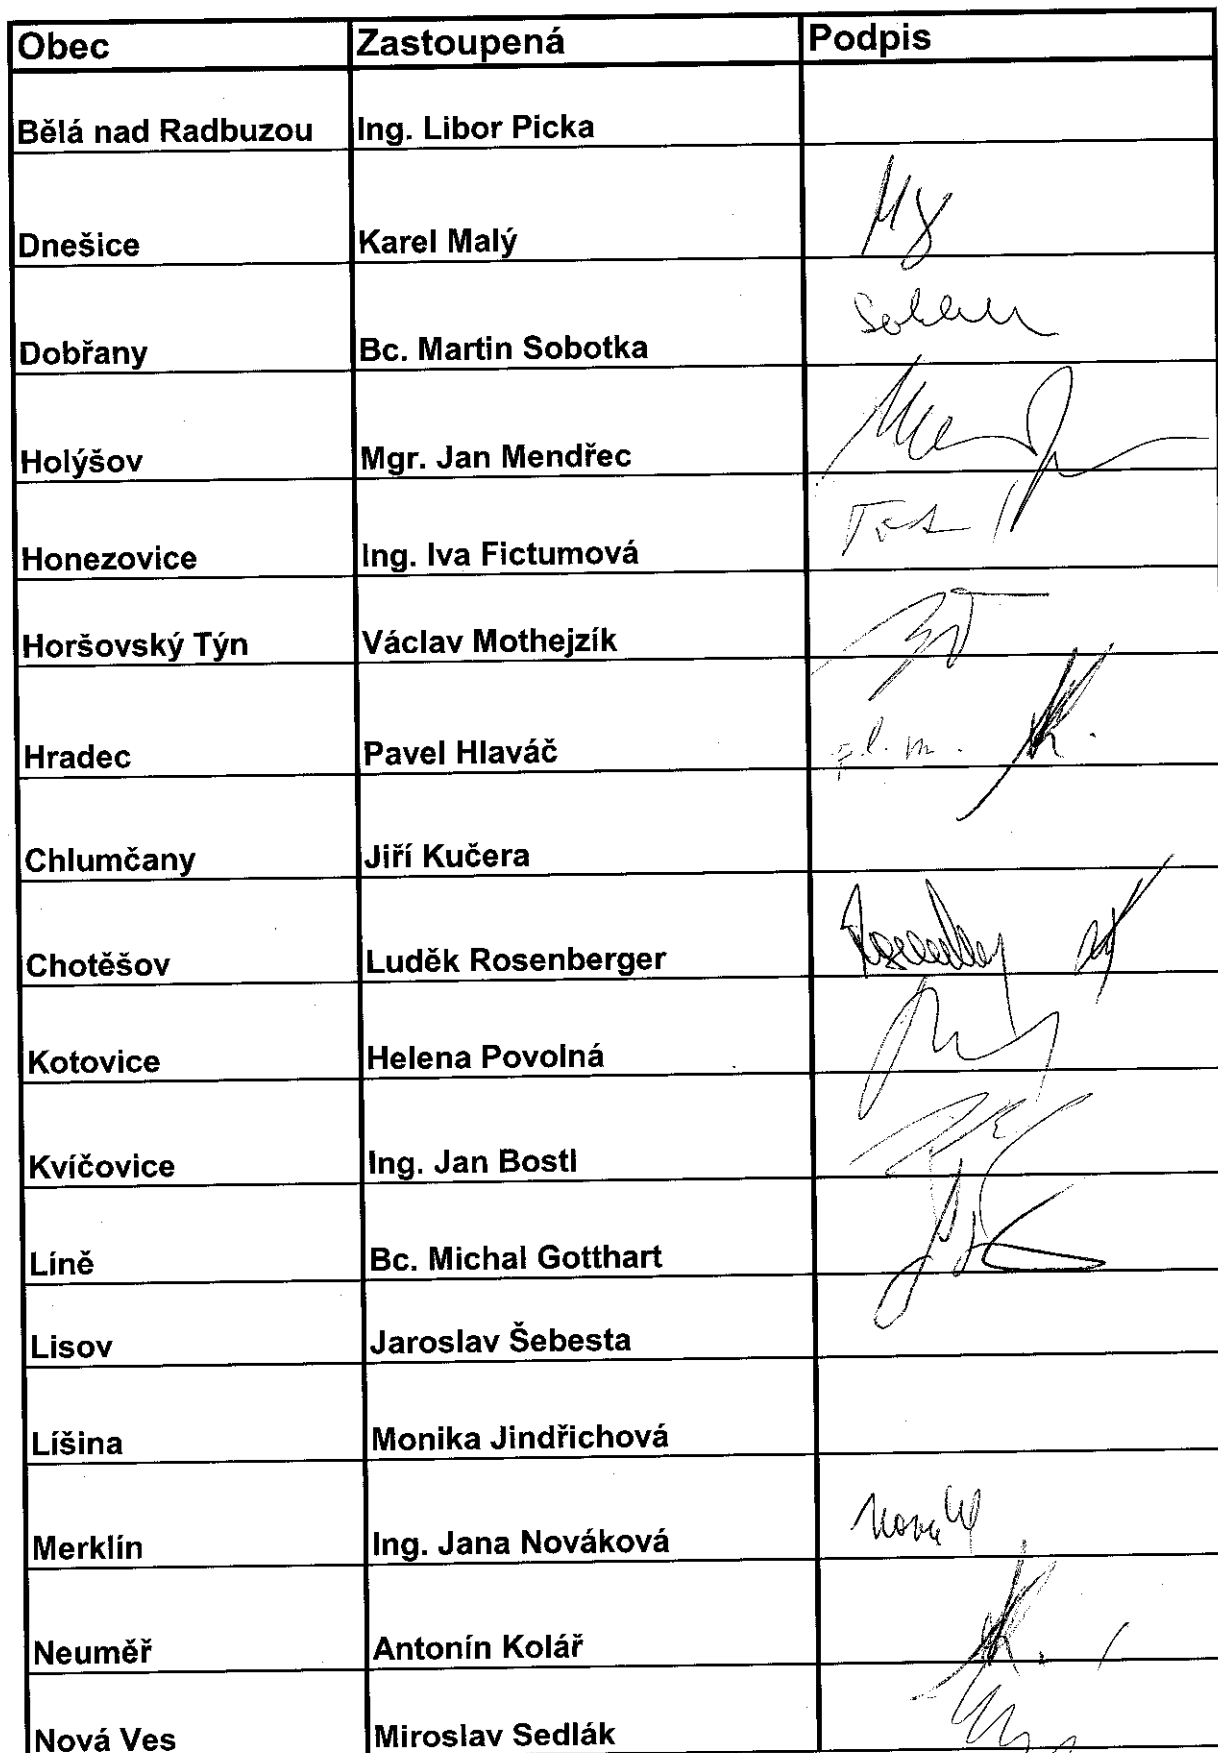 Obec Zastoupená Podpis
Bělá nad Radbuzou Ing. Libor Picka
Dnešice Karel Malý
Dobřany Bc. Martin Sobotka
Holýšov Mgr. Jan Mendřec
Honezovice Ing. Iva Fictumová
Horšovský Týn Václav Mothejzík
Hradec Pavel Hlaváč
Chlumčany Jiří Kučera
Chotěšov Luděk Rosenberger
Kotovice Helena Povolná
Kvíčovice Ing. Jan Bostl
Líně Bc. Michal Gotthart
Lisov Jaroslav Šebesta
Líšina Monika Jindřichová
Merklín Ing. Jana Nováková
Neuměř Antonín Kolář
Nová Ves Miroslav Sedlák